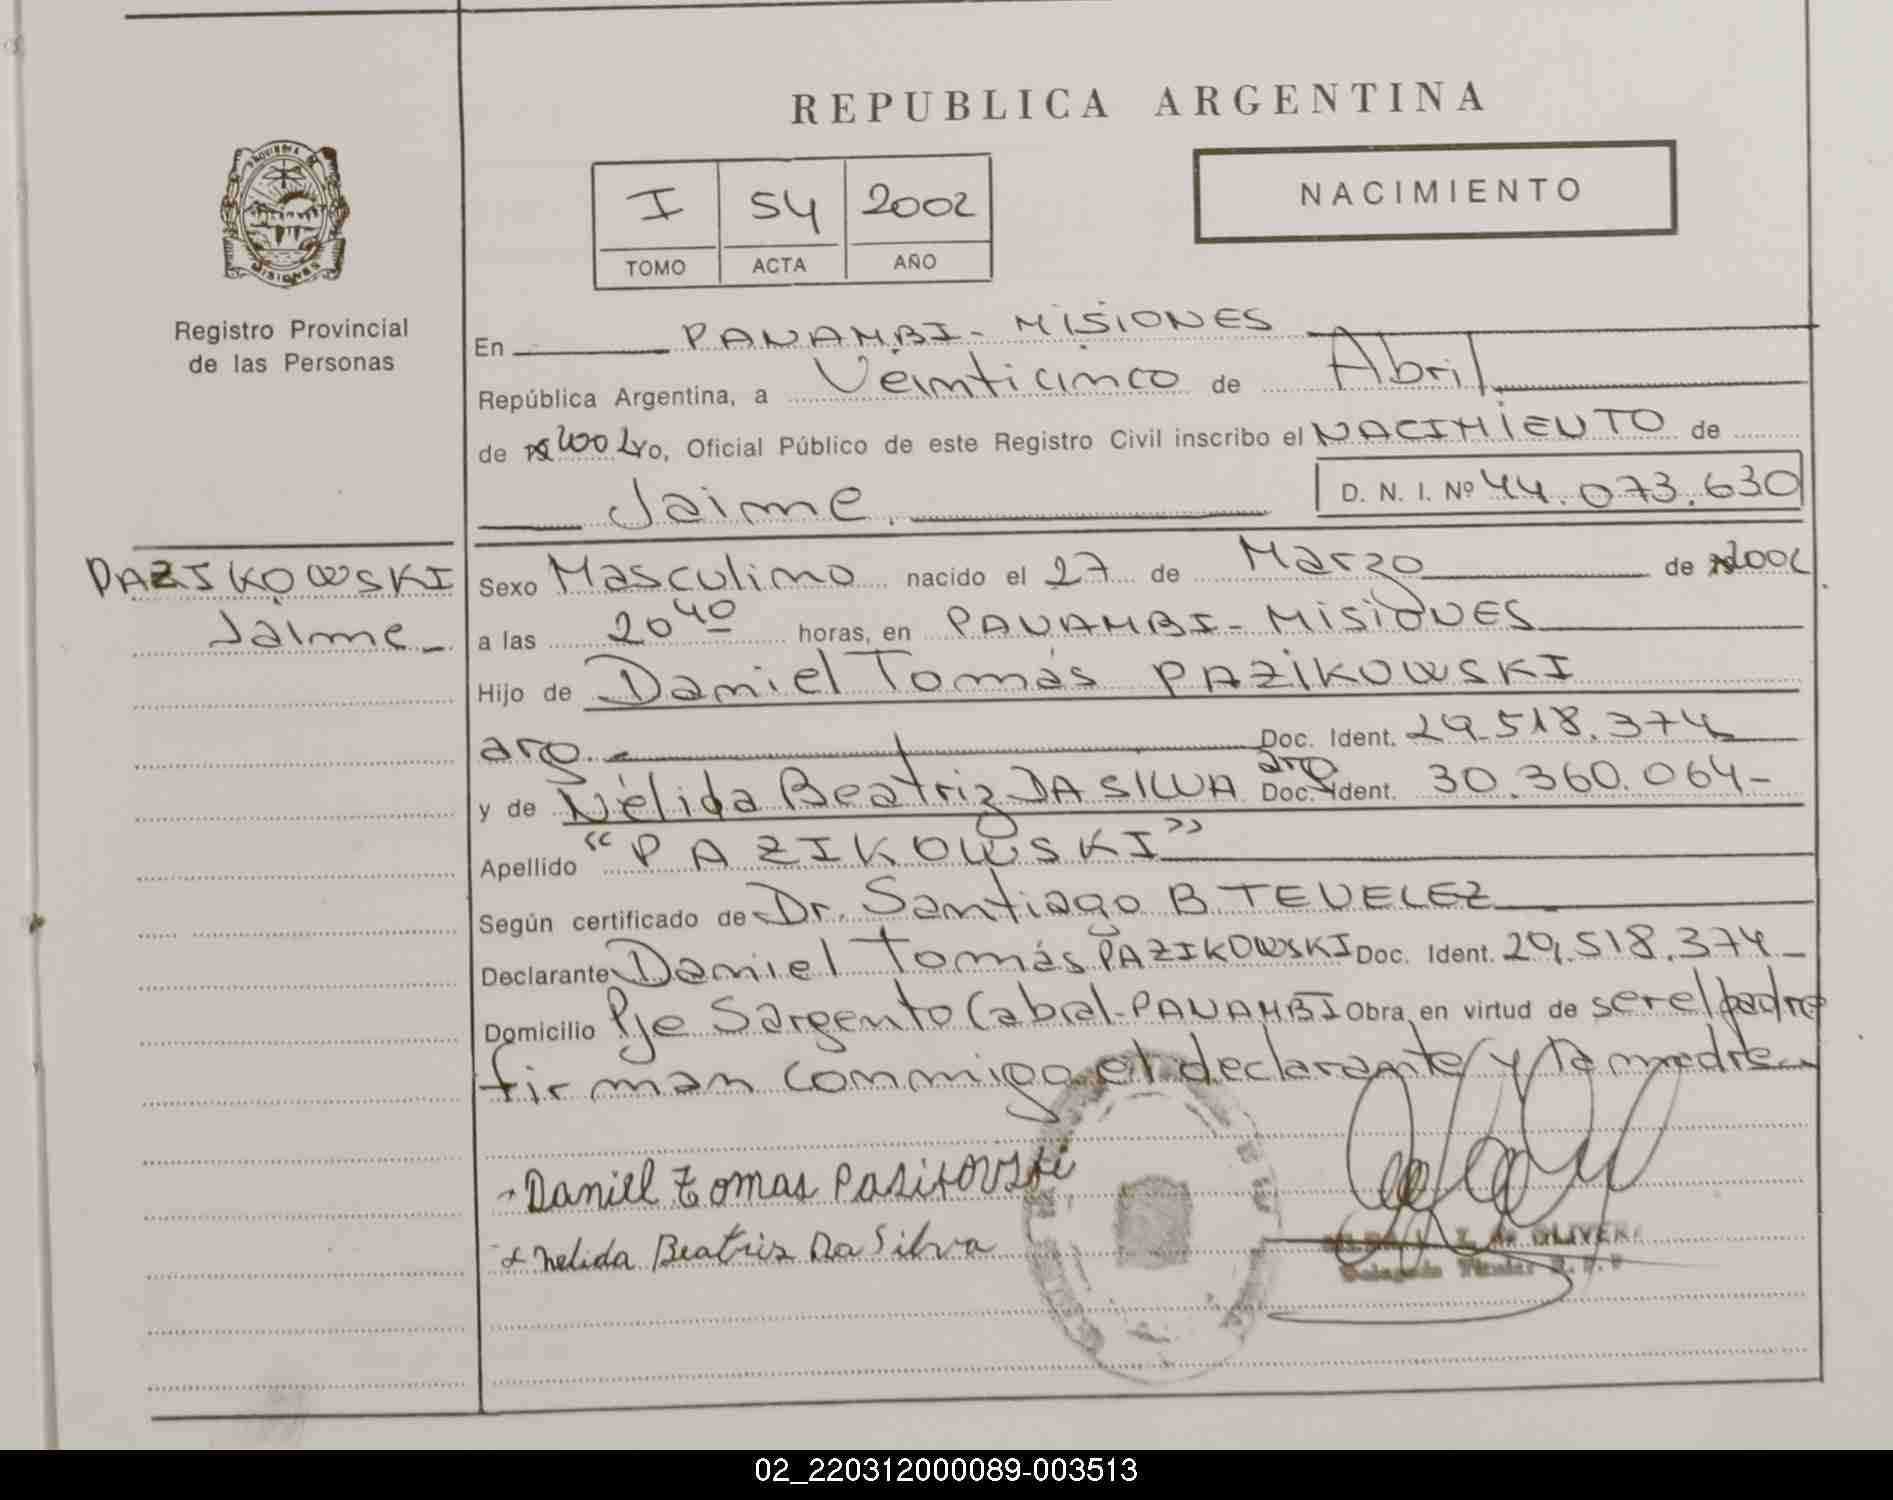 REPUBLICA ARGENTINA
PROVINCIA DE
MISIONES
Registro Provincial
de las Personas
I 54 2002
TOMO ACTA AÑO
NACIMIENTO
En PANAMBI - MISIONES
República Argentina, a Veinticinco de Abril
de 2002 yo, Oficial Público de este Registro Civil inscribo el NACIMIENTO de
Jaime. D. N. I. Nº 44.073.630
PAZIKOWSKI
Jaime
Sexo Masculino nacido el 27 de Marzo de 2002.
a las 20 40 horas, en PANAMBI - MISIONES
Hijo de Daniel Tomás PAZIKOWSKI
arg. Doc. Ident. 29.518.374
y de Nélida Beatriz DA SILVA arg Doc. Ident. 30.360.064-
Apellido "PAZIKOWSKI"
Según certificado de Dr. Santiago B TEVELEZ
Declarante Daniel Tomás PAZIKOWSKI Doc. Ident. 29.518.374-
Domicilio Pje Sargento Cabral-PANAMBI Obra en virtud de ser el padre
firman conmigo el declarante y la madre
Daniel Tomas Pasikovski
x nelida Beatriz Da Silva
de OLIVERA
Delegada Titular R.P.P
02_220312000089-003513